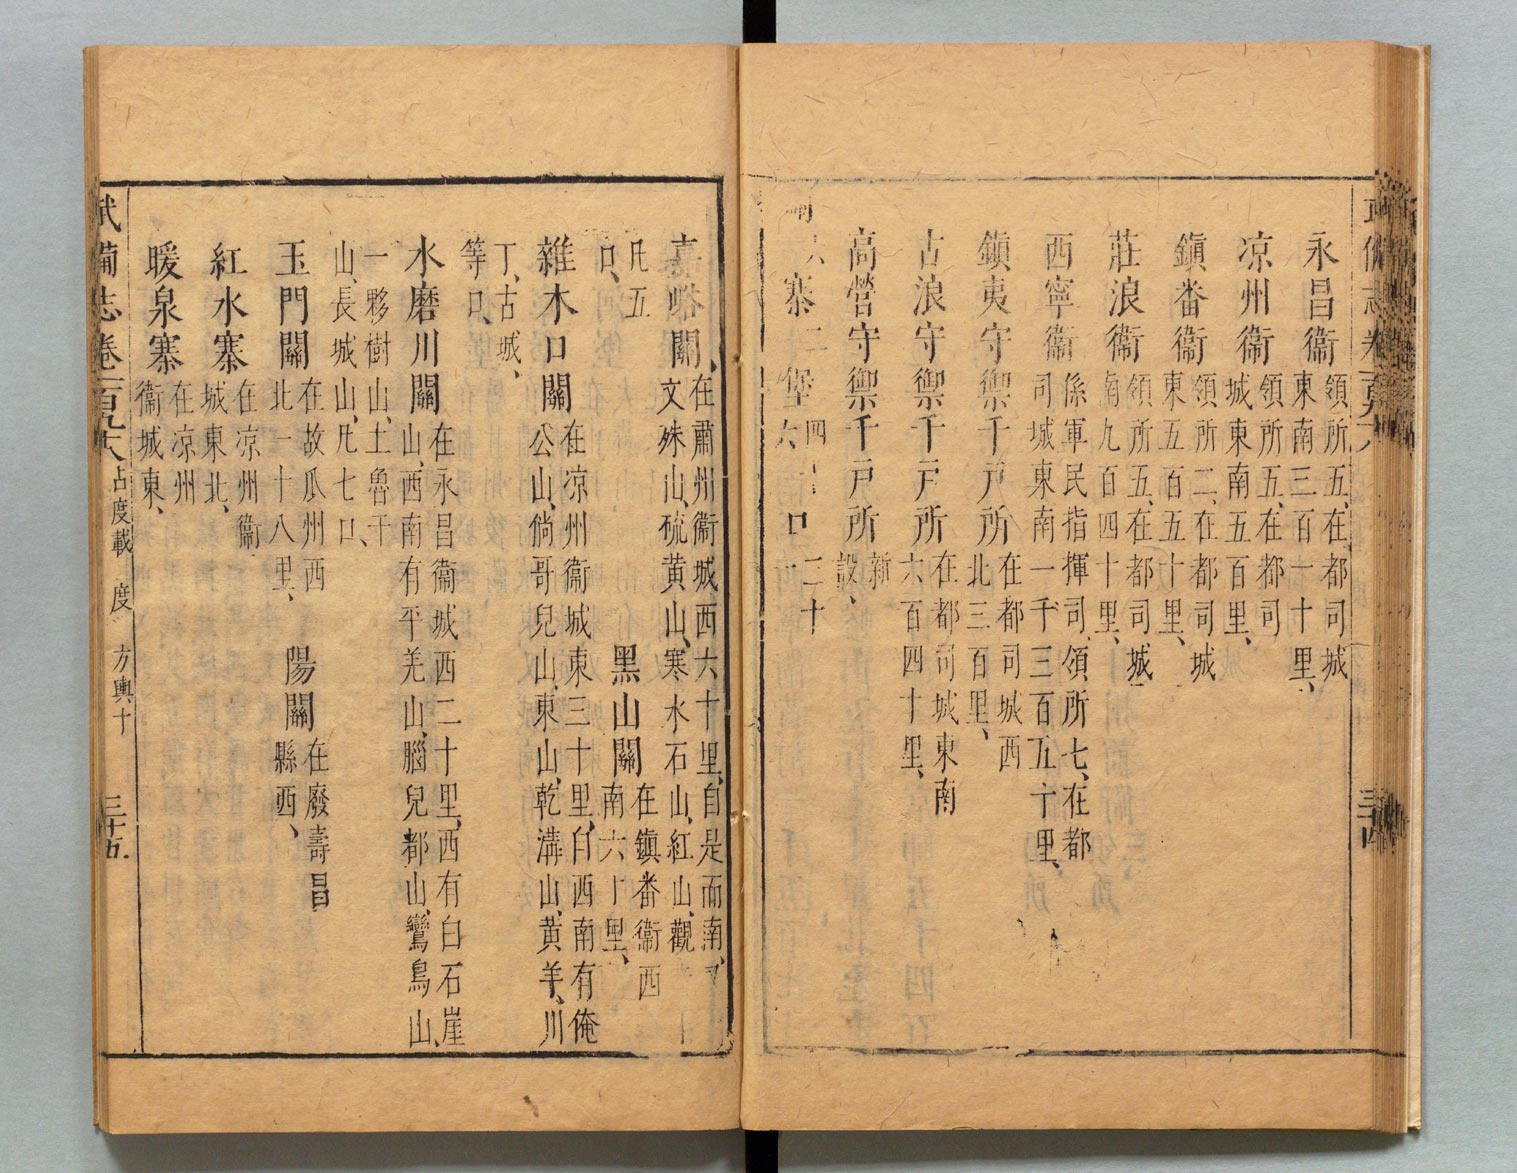 永昌衞領所五、在都司城東南三百一十里、
凉州衞領所五、在都司城東南五百里、
鎭番衞領所二、在都司城東五百五十里、
莊浪衞領所五、在都司城南九百四十里、
西寧衞係軍民指揮司、領所七、在都司城東南一千三百五十里、
鎭夷守禦千戸所在都司城西北三百里、
古浪守禦千戸所在都司城東南六百四十里、
高營守禦千戸所新設、
寨二堡四 口二十
嘉峪關、在肅州衞城西六十里、自是而南、文殊山、硫黄山、寒水石山、紅山、觀
凡五口、 黑山關在鎭番衞西南六十里、
雜木口關在凉州衞城東三十里、自西南有俺公山、倘哥兒山、東山、乾溝山、黄羊、川
丁、古城、等口、
水磨川關在永昌衞城西二十里、西有白石崖山、西南有平羌山、腦兒都山、鸞鳥山、
一夥樹山、土魯干山、長城山、凡七口、
玉門關在故瓜州西北一十八里、 陽關在廢壽昌縣西、
紅水寨在凉州衞城東北、
暖泉寨在凉州衞城東、
武備志卷一百九六 占度載 度 方輿十 三十五